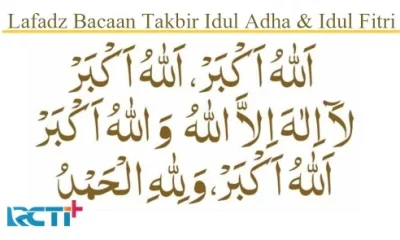 Lafadz Bacaan Takbir Idul Adha & Idul Fitri
اَللهُ اَكْبَرْ، اَللهُ اَكْبَرْ
لَآ اِلٰهَ اِلاَّ اللهُ وَاللهُ اَكْبَرْ
اَللهُ اَكْبَرْ، وَلِلّٰهِ الْحَمْدُ
RCTI+